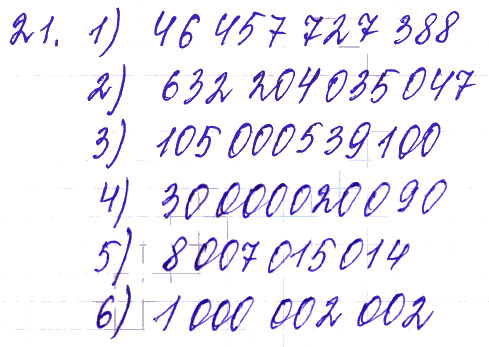 21. 1) 46 457 727 388
2) 632 204 035 047
3) 105 000 539 100
4) 30 000 020 090
5) 8 007 015 014
6) 1 000 002 002